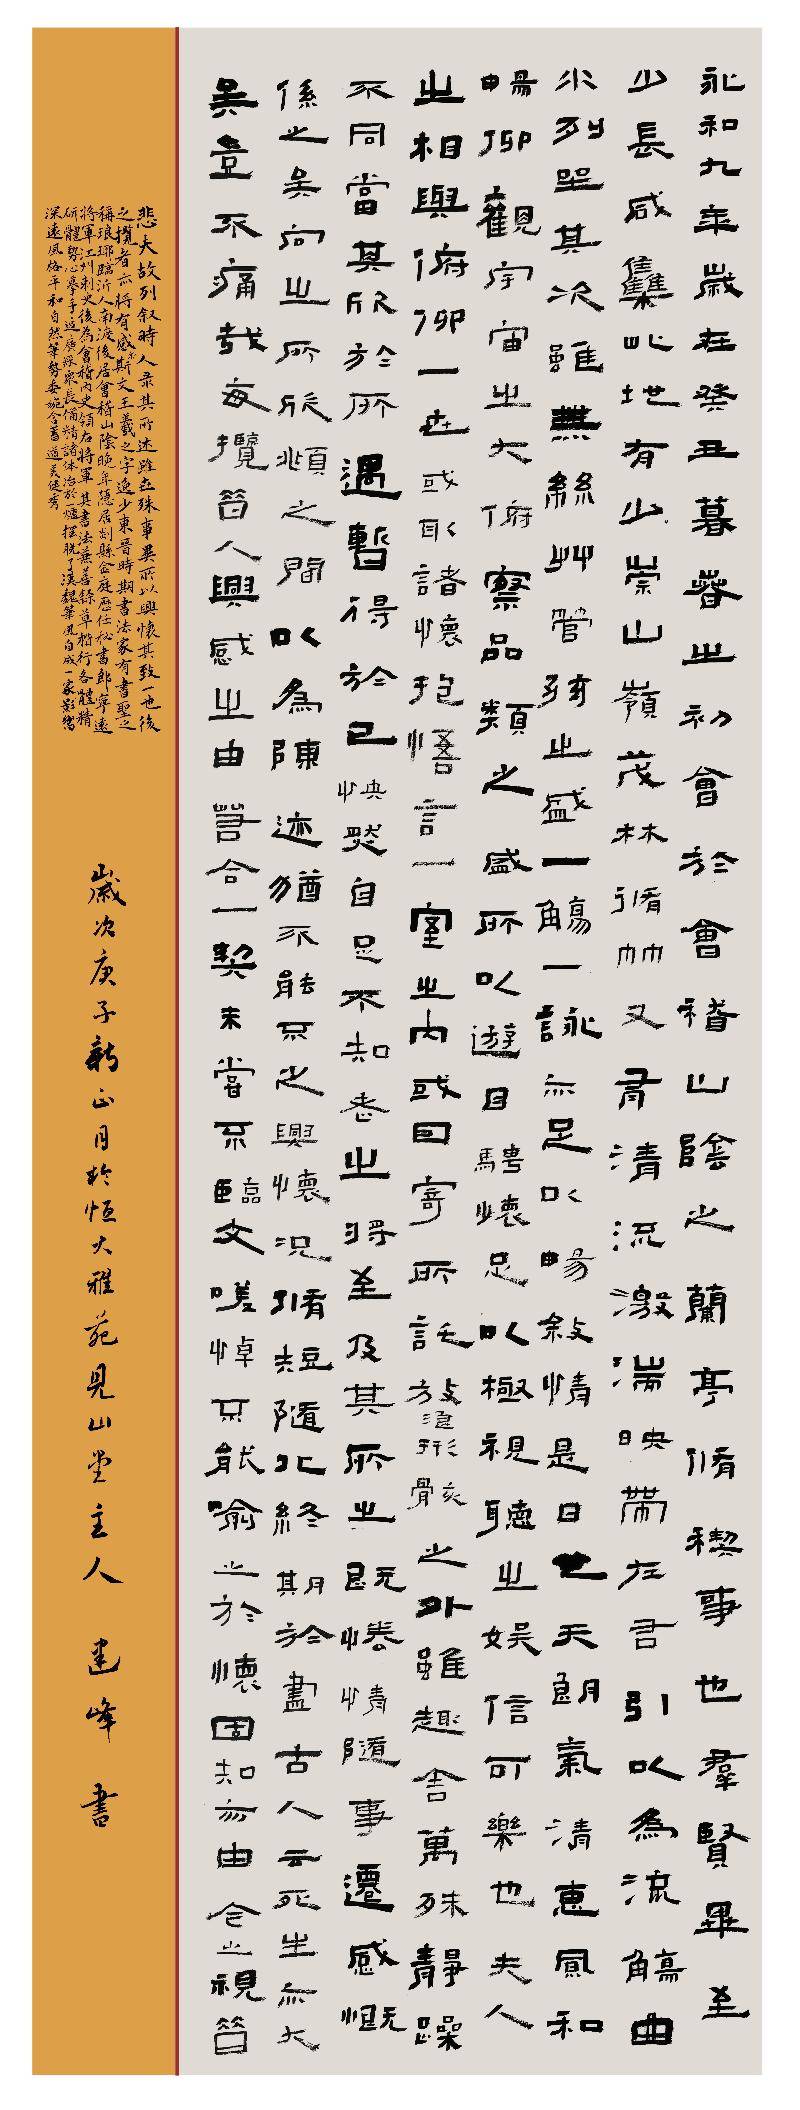 永和九年歲在癸丑暮春之初會於會稽山陰之蘭亭脩稧事也羣賢畢至
少長咸集此地有少崇山嶺茂林脩竹又有清流激湍映帶左右引以為流觴曲
水列坐其次雖無絲竹管弦之盛一觴一詠亦足以暢敘情是日也天朗氣清惠風和
暢仰觀宇宙之大俯察品類之盛所以遊目騁懷足以極視聽之娛信可樂也夫人
之相與俯仰一世或取諸懷抱悟言一室之內或因寄所託放浪形骸之外雖趣舍萬殊靜躁
不同當其欣於所遇暫得於己怏然自足不知老之將至及其所之既惓情隨事遷感慨
係之矣向之所欣頫之間以為陳迹猶不能不之興懷況脩短隨化終期於盡古人云死生亦大
矣豈不痛哉每攬昔人興感之由若合一契未嘗不臨文嗟悼不能喻之於懷固知亦由今之視昔
悲夫故列叙時人录其所述雖世殊事異所以興懷其致一也後
之攬者亦將有感於斯文王羲之字逸少東晉時期書法家有書聖之
稱琅琊臨沂人南渡後居會稽山陰晚年隱居剡縣金庭歷任秘書郎寧遠
將軍江州刺史後為會稽內史領右將軍其書法兼善隸草楷行各體精
研體勢心摹手追廣採眾長備精諸体冶於一爐擺脫了漢魏筆風自成一家影響
深遠風格平和自然筆勢委婉含蓄遒美健秀
歲次庚子新正月於恒大雅苑見山堂主人 建峰 書